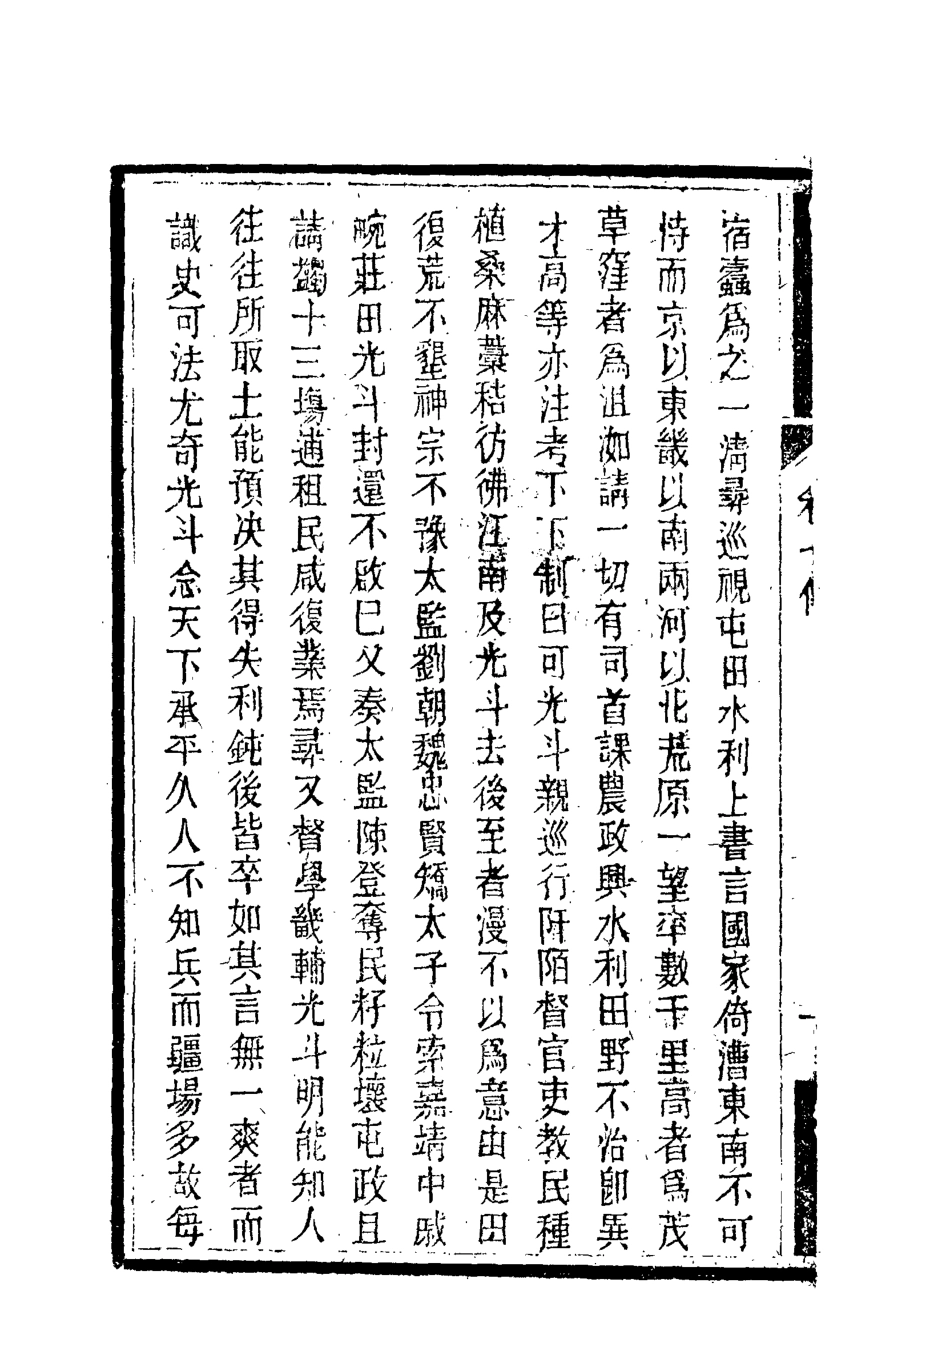 宿蠹爲之一清尋巡視屯田水利上書言國家倚漕東南不可
恃而京以東畿以南兩河以北荒原一望率數千里高者爲茂
草窪者爲沮洳請一切有司首課農政興水利田野不治卽異
才高等亦注考下下制曰可光斗親巡行阡陌督官吏教民種
植桑麻藁秸彷彿江南及光斗去後至者漫不以爲意由是田
復荒不墾神宗不豫太監劉朝魏忠賢矯太子令索嘉靖中戚
畹莊田光斗封還不啟巳又奏太監陳登奪民籽粒壞屯政且
請蠲十三塲逋租民咸復業焉尋又督學畿輔光斗明能知人
往往所取士能預決其得失利鈍後皆卒如其言無一爽者而
識史可法尤奇光斗念天下承平久人不知兵而疆場多故每